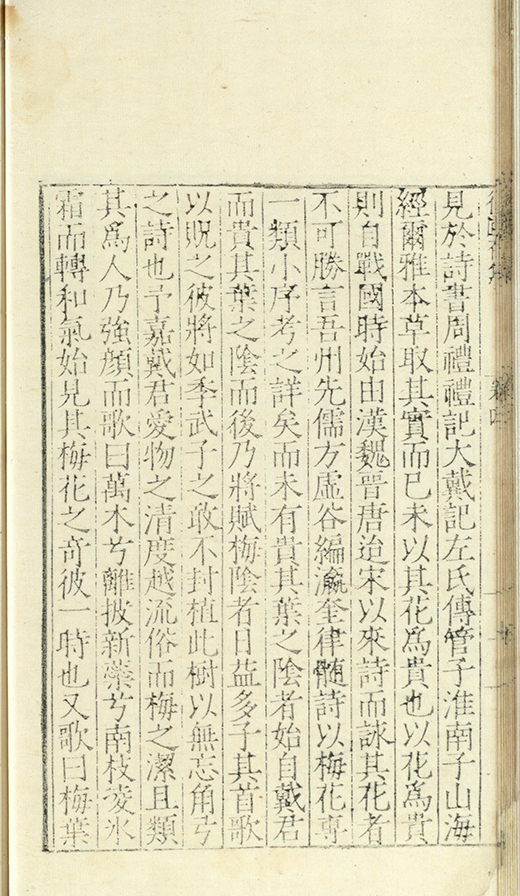 見於詩書周禮禮記大戴記左氏傳管子淮南子山海
經爾雅本草取其實而已未以其花爲貴也以花爲貴
則自戰國時始由漢魏晋唐迨宋以來詩而詠其花者
不可勝言吾州先儒方虛谷編瀛奎律髓詩以梅花專
一類小序考之詳矣而未有貴其葉之陰者始自戴君
而貴其葉之陰而後乃將賦梅陰者日益多予其首歌
以貺之彼將如季武子之敢不封植此樹以無忘角弓
之詩也予嘉戴君愛物之清度越流俗而梅之潔且類
其爲人乃強顔而歌曰萬木兮離披新蘂兮南枝凌氷
霜而轉和氣始見其梅花之奇彼一時也又歌曰梅葉
卷四